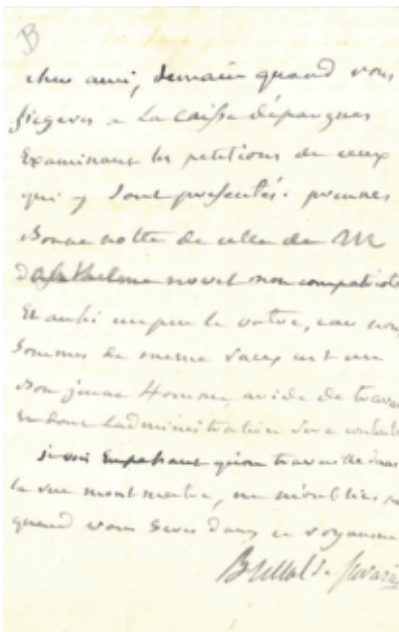 B
cher ami, demain quand vous
siegeres a la caisse dépargnes
Examinant les petitions de ceux
qui y sont presentés. prennes
Bonne notte de celle de M
novel mon compatriote
Et aussi un peu le votre, car nous
sommes de meme
Bon jeune homme, avide de travail
Et dont Ladministration sera contente
je vois qu'on travaille dans
la rue montmartre, ne m'oublies pas
quand vous seres dans ce royaume
Brillat de Savarin